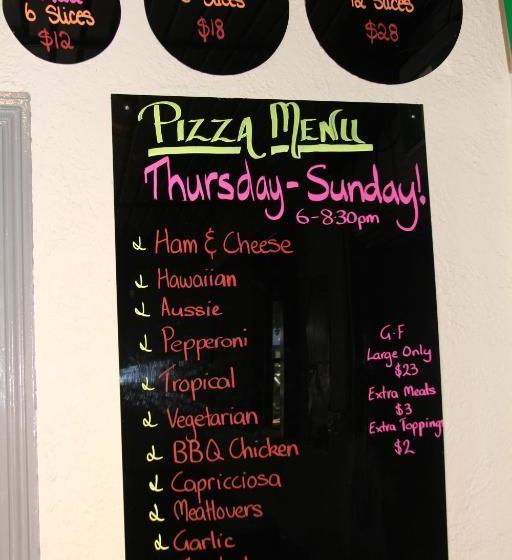 6 Slices
$12
$18
12 Slices
$28
PIZZA MENU
Thursday - Sunday!
6-8:30pm
Ham & Cheese
Hawaiian
Aussie
Pepperoni
Tropical
Vegetarian
BBQ Chicken
Capricciosa
Meatlovers
Garlic
G.F
Large Only
$23
Extra Meats
$3
Extra Topping
$2